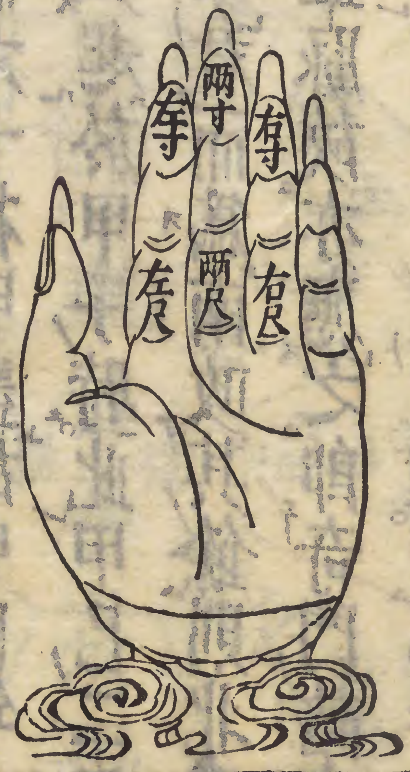 左寸
两寸
右寸
左尺
两尺
右尺